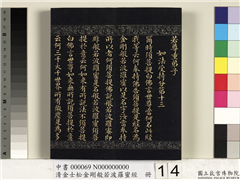 若尊重弟子
如法受持分第十三
爾時須菩提白佛言世尊當何名此經
我等云何奉持佛告須菩提是經名為
金剛般若波羅蜜以是名字汝當奉持
所以者何須菩提佛說般若波羅蜜即
非般若波羅蜜是名般若波羅蜜須菩
提於意云何如來有所說法不須菩提
白佛言世尊如來無所說須菩提於意
云何三千大千世界所有微塵是為多
中書 000069 N000000000
清金士松金剛般若波羅蜜經 冊
14
國立故宮博物院